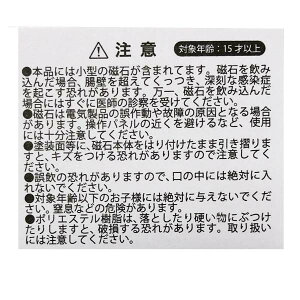 注意 対象年齢：15才以上
●本品には小型の磁石が含まれてます。磁石を飲み
込んだ場合、腸壁を超えてくっつき、深刻な感染症
を起こす恐れがあります。万一、磁石を飲み込んだ
場合にはすぐに医師の診察を受けてください。
●磁石は電気製品の誤作動や故障の原因となる場合
があります。操作パネルの近くを避けるなど、使用
には十分注意してください。
●塗装面等に、磁石本体をはり付けたまま引き摺り
すると、キズをつける恐れがありますので注意して
ください。
●誤飲の恐れがありますので、口の中には絶対に入
れないでください。
●対象年齢以下のお子様には絶対に与えないでくだ
さい。窒息などの危険があります。
●ポリエステル樹脂は、落としたり硬い物にぶつけ
たりしますと、破損する恐れがあります。取り扱い
には注意してください。